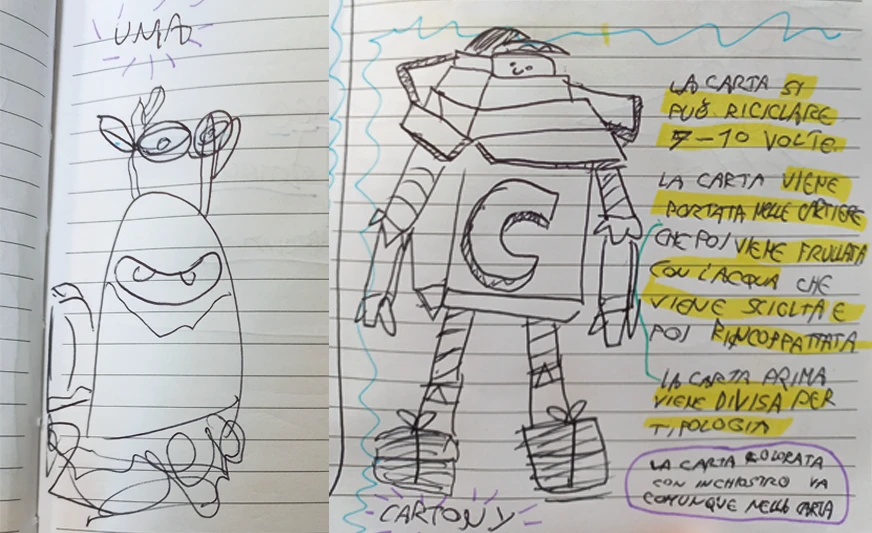 UMA
C
LA CARTA SI
PUÒ RICICLARE
7-10 VOLTE
LA CARTA VIENE
PORTATA NELLE CARTIERE
CHE POI VIENE FRULLATA
CON L'ACQUA CHE
VIENE SCIOLTA E
POI RINCOPPATTATA
LA CARTA PRIMA
VIENE DIVISA PER
TIPOLOGIA
LA CARTA COLORATA
CON INCHIOSTRO VA
COMUNQUE NELLA CARTA
CARTONY